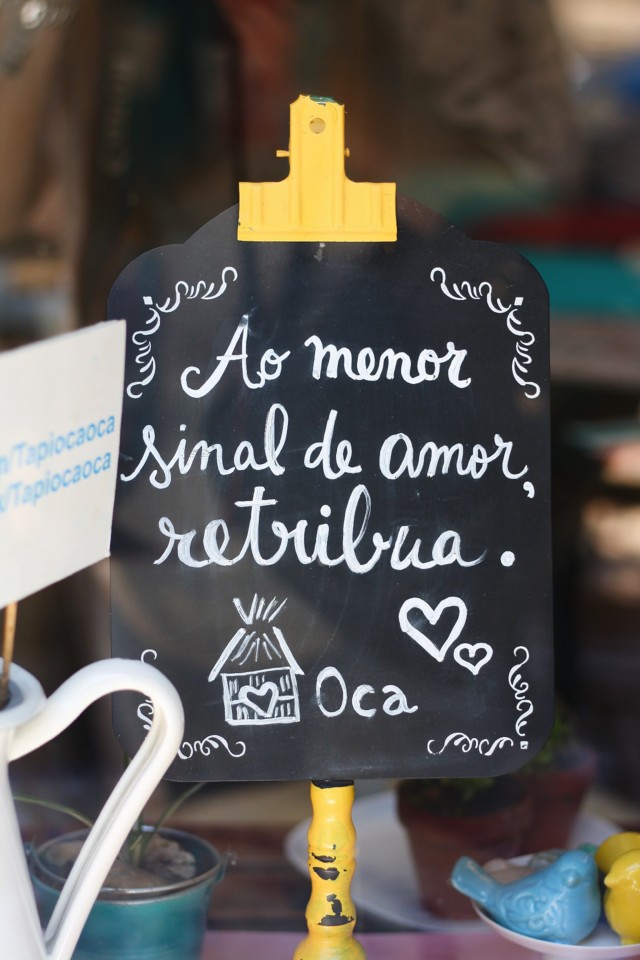 Ao menor
sinal de amor,
retribua.
Oca
/Tapiocaoca
/Tapiocaoca